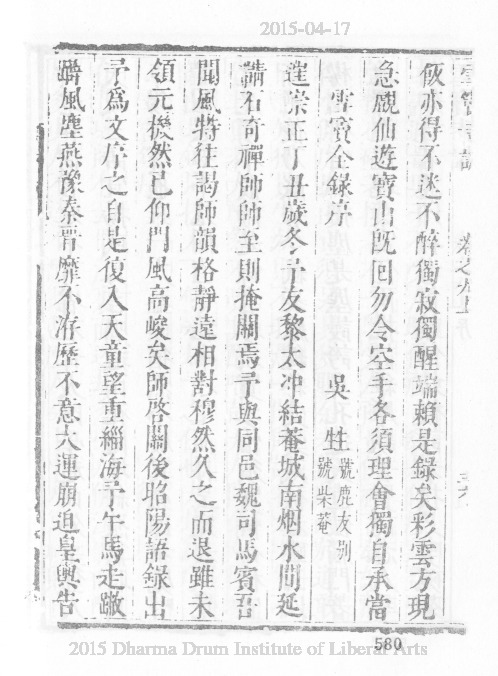 2015-04-17
雪竇寺誌 卷之九上序 三六
飯亦得不迷不醉獨寂獨醒端賴是錄矣彩雲方現
急覷仙遊寶山旣囘勿令空手各須理會獨自承當
雪竇全錄序 吳甡號鹿友別號柴菴
逬崇正丁丑歲冬予友黎太冲結菴城南烟水間延
請石奇禪師師至則掩關焉予與同邑魏司馬賓吾
聞風特往謁師韻格靜遠相對穆然久之而退雖未
領元機然已仰門風高峻矣師啓關後昭陽語錄出
予爲文序之自是復入天童望重緇海予午馬走蹴
蹋風塵燕豫秦晋靡不游歷不意大運崩迫皇輿告
580
2015 Dharma Drum Institute of Liberal Arts